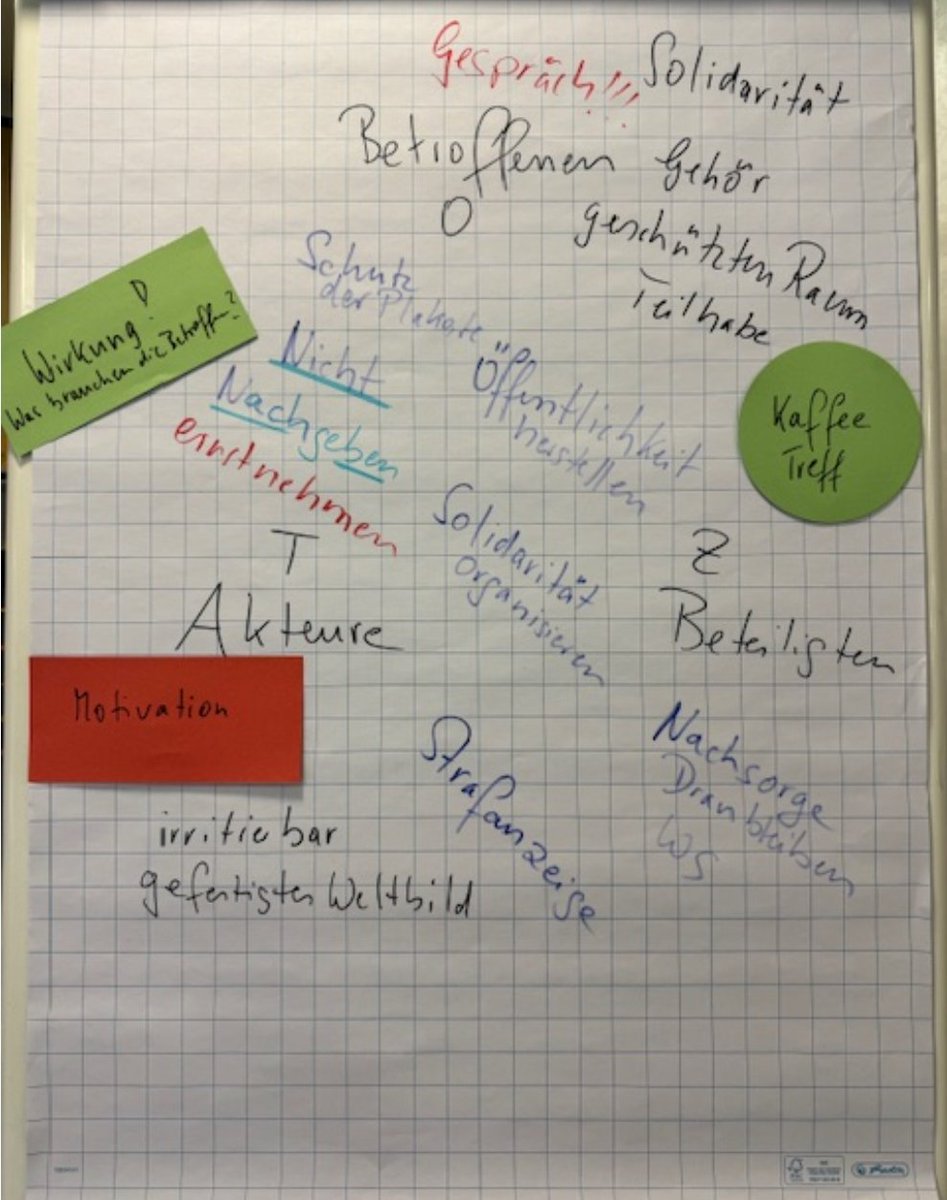 Gespräch!!!
Solidarität
Betroffenen
O
Gehör
geschützten Raum
Teilhabe
Wirkung!
Was brauchen die Betroffn?
Schutz
der Plakate
Nicht
Nachgeben
ernst nehmen
Öffentlichkeit
herstellen
Kaffee
Treff
Solidarität
organisieren
T
Akteure
Z
Beteiligten
Motivation
Strafanzeige
Nachsorge
Dran bleiben
WS
irritierbar
gefestigtes Weltbild